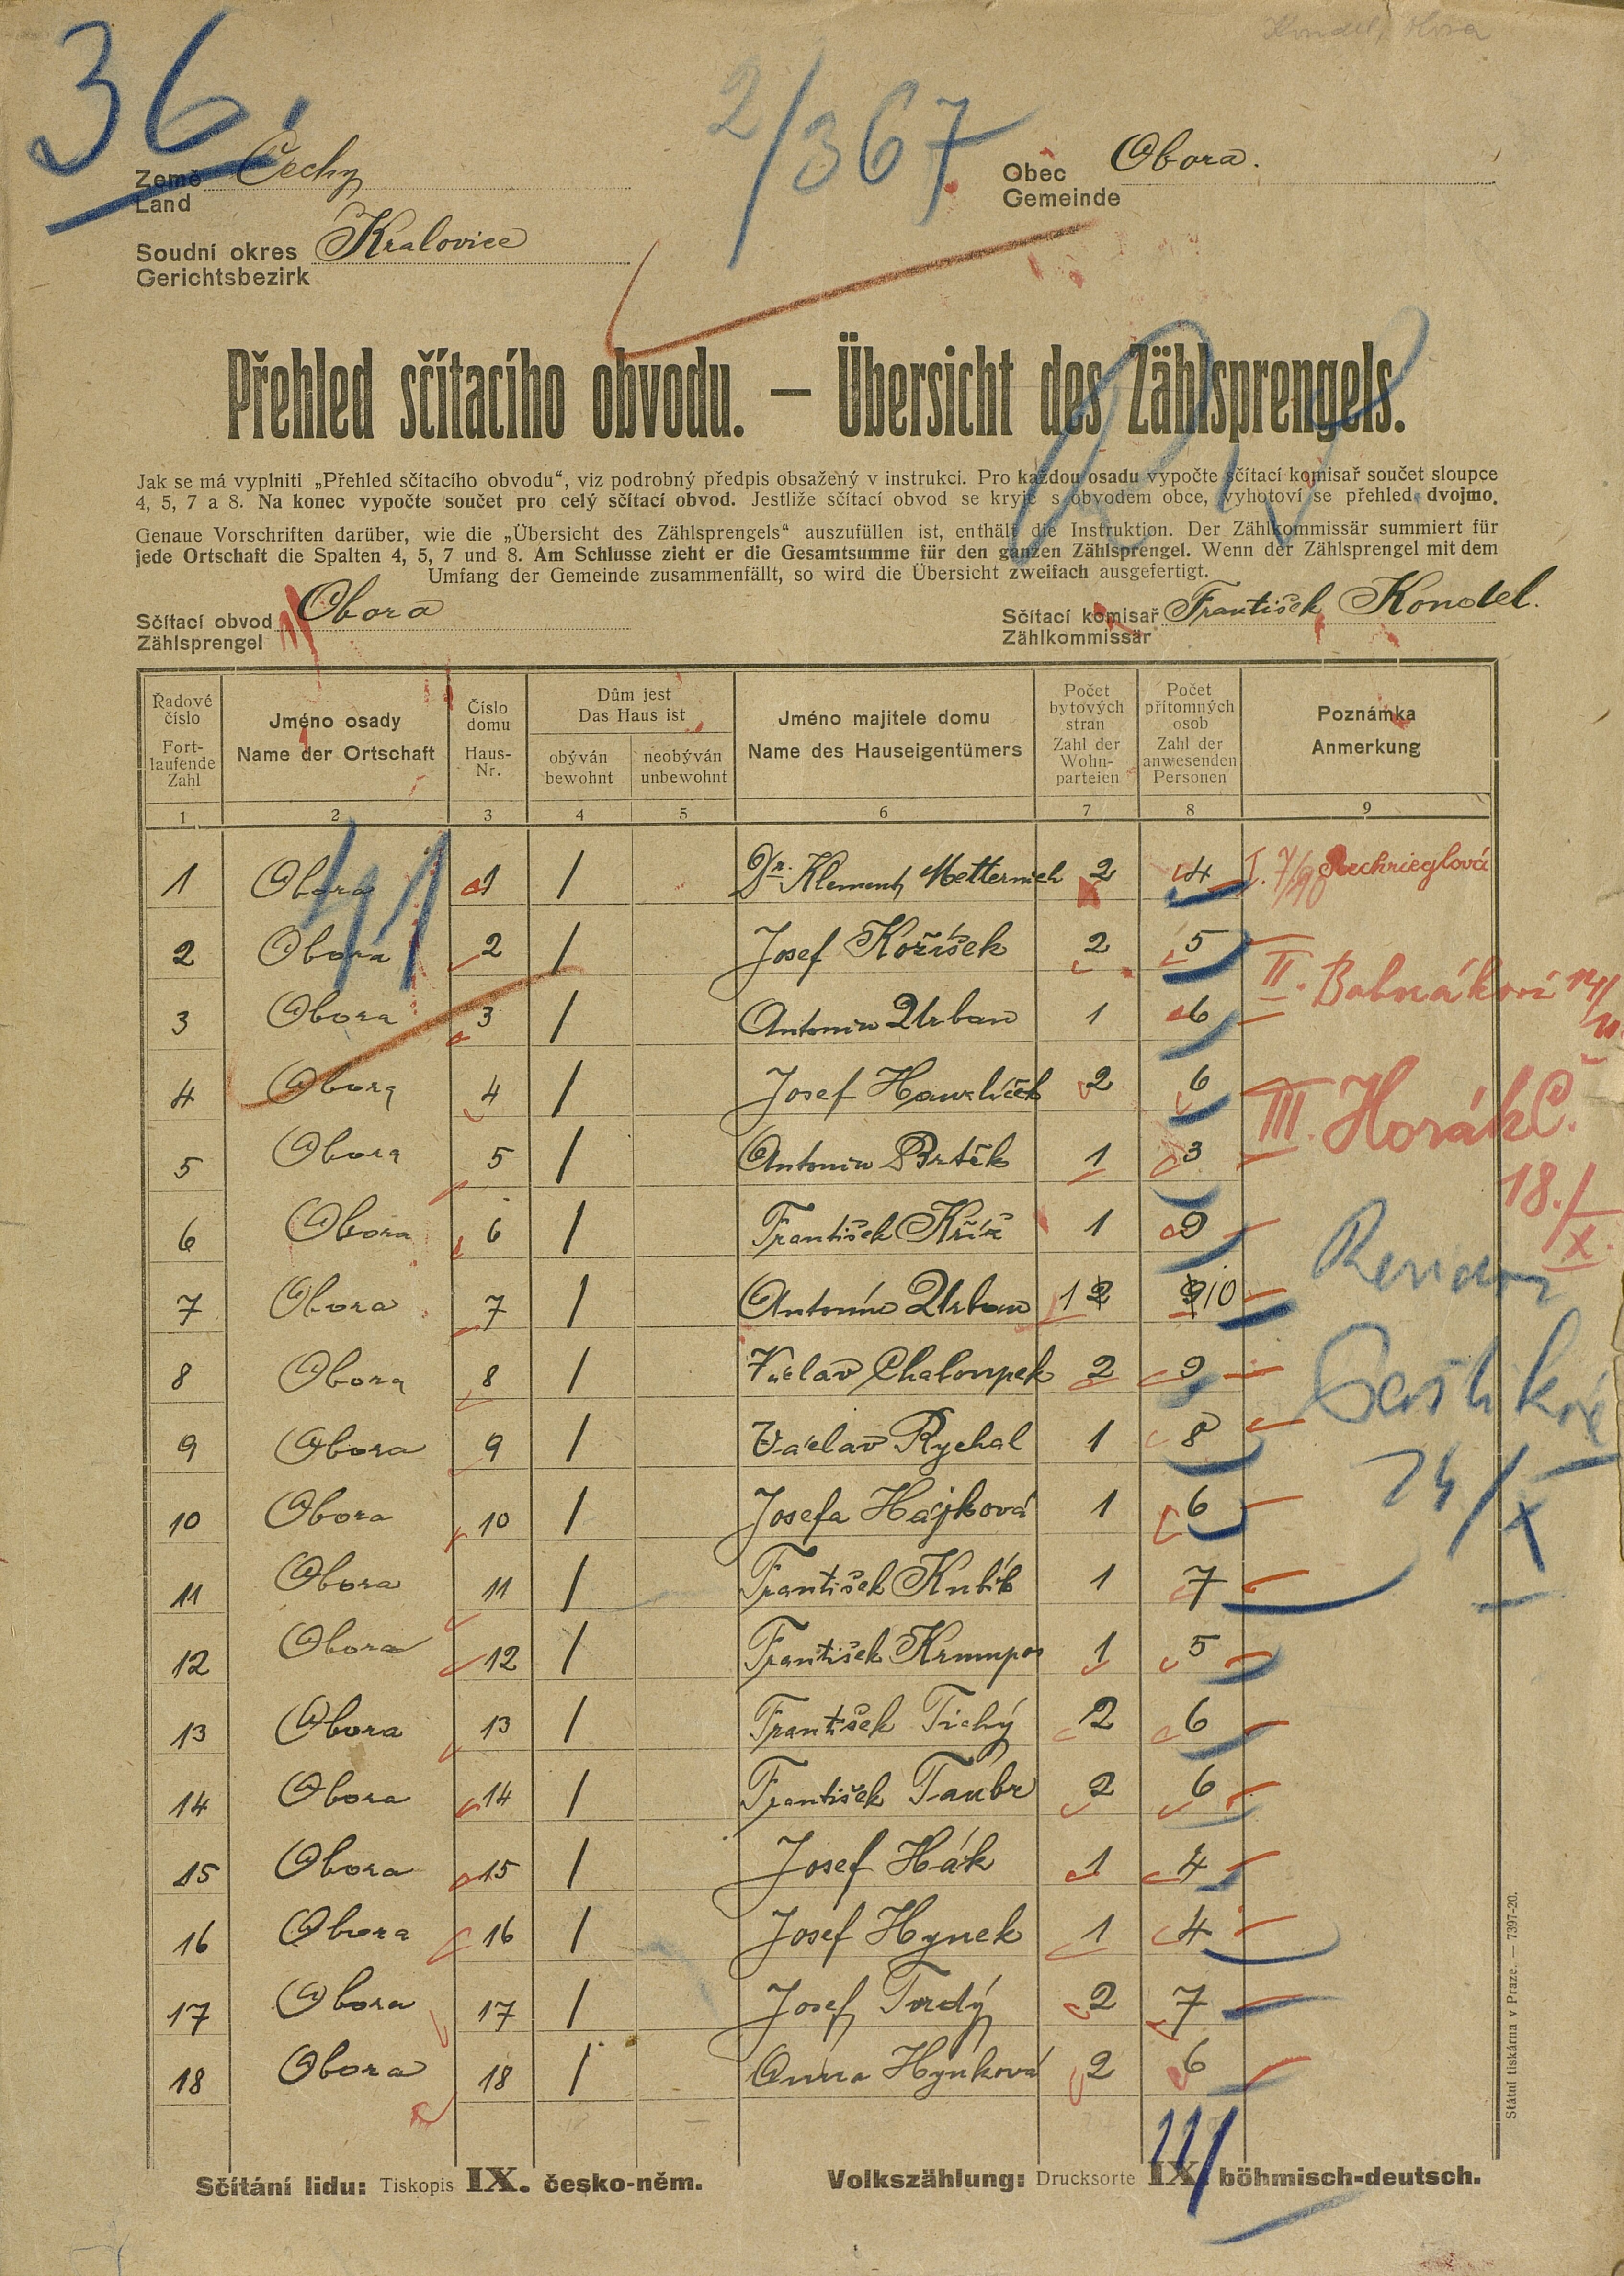 36.
2/367
Země Čechy
Land
Obec Obora.
Gemeinde
Soudní okres Kralovice
Gerichtsbezirk
Přehled sčítacího obvodu. — Übersicht des Zählsprengels.
Jak se má vyplniti „Přehled sčítacího obvodu“, viz podrobný předpis obsažený v instrukci. Pro každou osadu vypočte sčítací komisař součet sloupce
4, 5, 7 a 8. Na konec vypočte součet pro celý sčítací obvod. Jestliže sčítací obvod se kryje s obvodem obce, vyhotoví se přehled dvojmo.
Genaue Vorschriften darüber, wie die „Übersicht des Zählsprengels“ auszufüllen ist, enthält die Instruktion. Der Zählkommissär summiert für
jede Ortschaft die Spalten 4, 5, 7 und 8. Am Schlusse zieht er die Gesamtsumme für den ganzen Zählsprengel. Wenn der Zählsprengel mit dem
Umfang der Gemeinde zusammenfällt, so wird die Übersicht zweifach ausgefertigt.
Sčítací obvod Obora
Zählsprengel
Sčítací komisař František Kondel.
Zählkommissär
Řadové číslo Fortlaufende Zahl
Jméno osady Name der Ortschaft
Číslo domu Haus-Nr.
Dům jest Das Haus ist
obýván bewohnt
neobýván unbewohnt
Jméno majitele domu Name des Hauseigentümers
Počet bytových stran Zahl der Wohn-parteien
Počet přítomných osob Zahl der anwesenden Personen
Poznámka Anmerkung
1 2 3 4 5 6 7 8 9
41
1 Obora 1 / Dr. Klement Metternich 2 4 I. 7/10
2 Obora 2 / Josef Kořísek 2 5
II.
3 Obora 3 / Antonín Urban 1 6
4 Obora 4 / Josef Hawelíček 2 6
III. Horák Č.
5 Obora 5 / Antonín Brtěk 1 3
18./X.
6 Obora 6 / František Kříž 1 9
Revidov
7 Obora 7 / Antonín Urban 1 2 9 10
8 Obora 8 / Václav Chaloupek 2 9
9 Obora 9 / Václav Rychal 1 8
24/X
10 Obora 10 / Josefa Hájková 1 6
11 Obora 11 / František Kubík 1 7
12 Obora 12 / František Krumpos 1 5
13 Obora 13 / František Tichý 2 6
14 Obora 14 / František Taubr 2 6
15 Obora 15 / Josef Hák 1 4
16 Obora 16 / Josef Hynek 1 4
17 Obora 17 / Josef Tvrdý 2 7
18 Obora 18 / Anna Hynková 2 6
111/
Sčítání lidu: Tiskopis IX. česko-něm.
Volkszählung: Drucksorte IX. böhmisch-deutsch.
Státní tiskárna v Praze. — 7397-20.